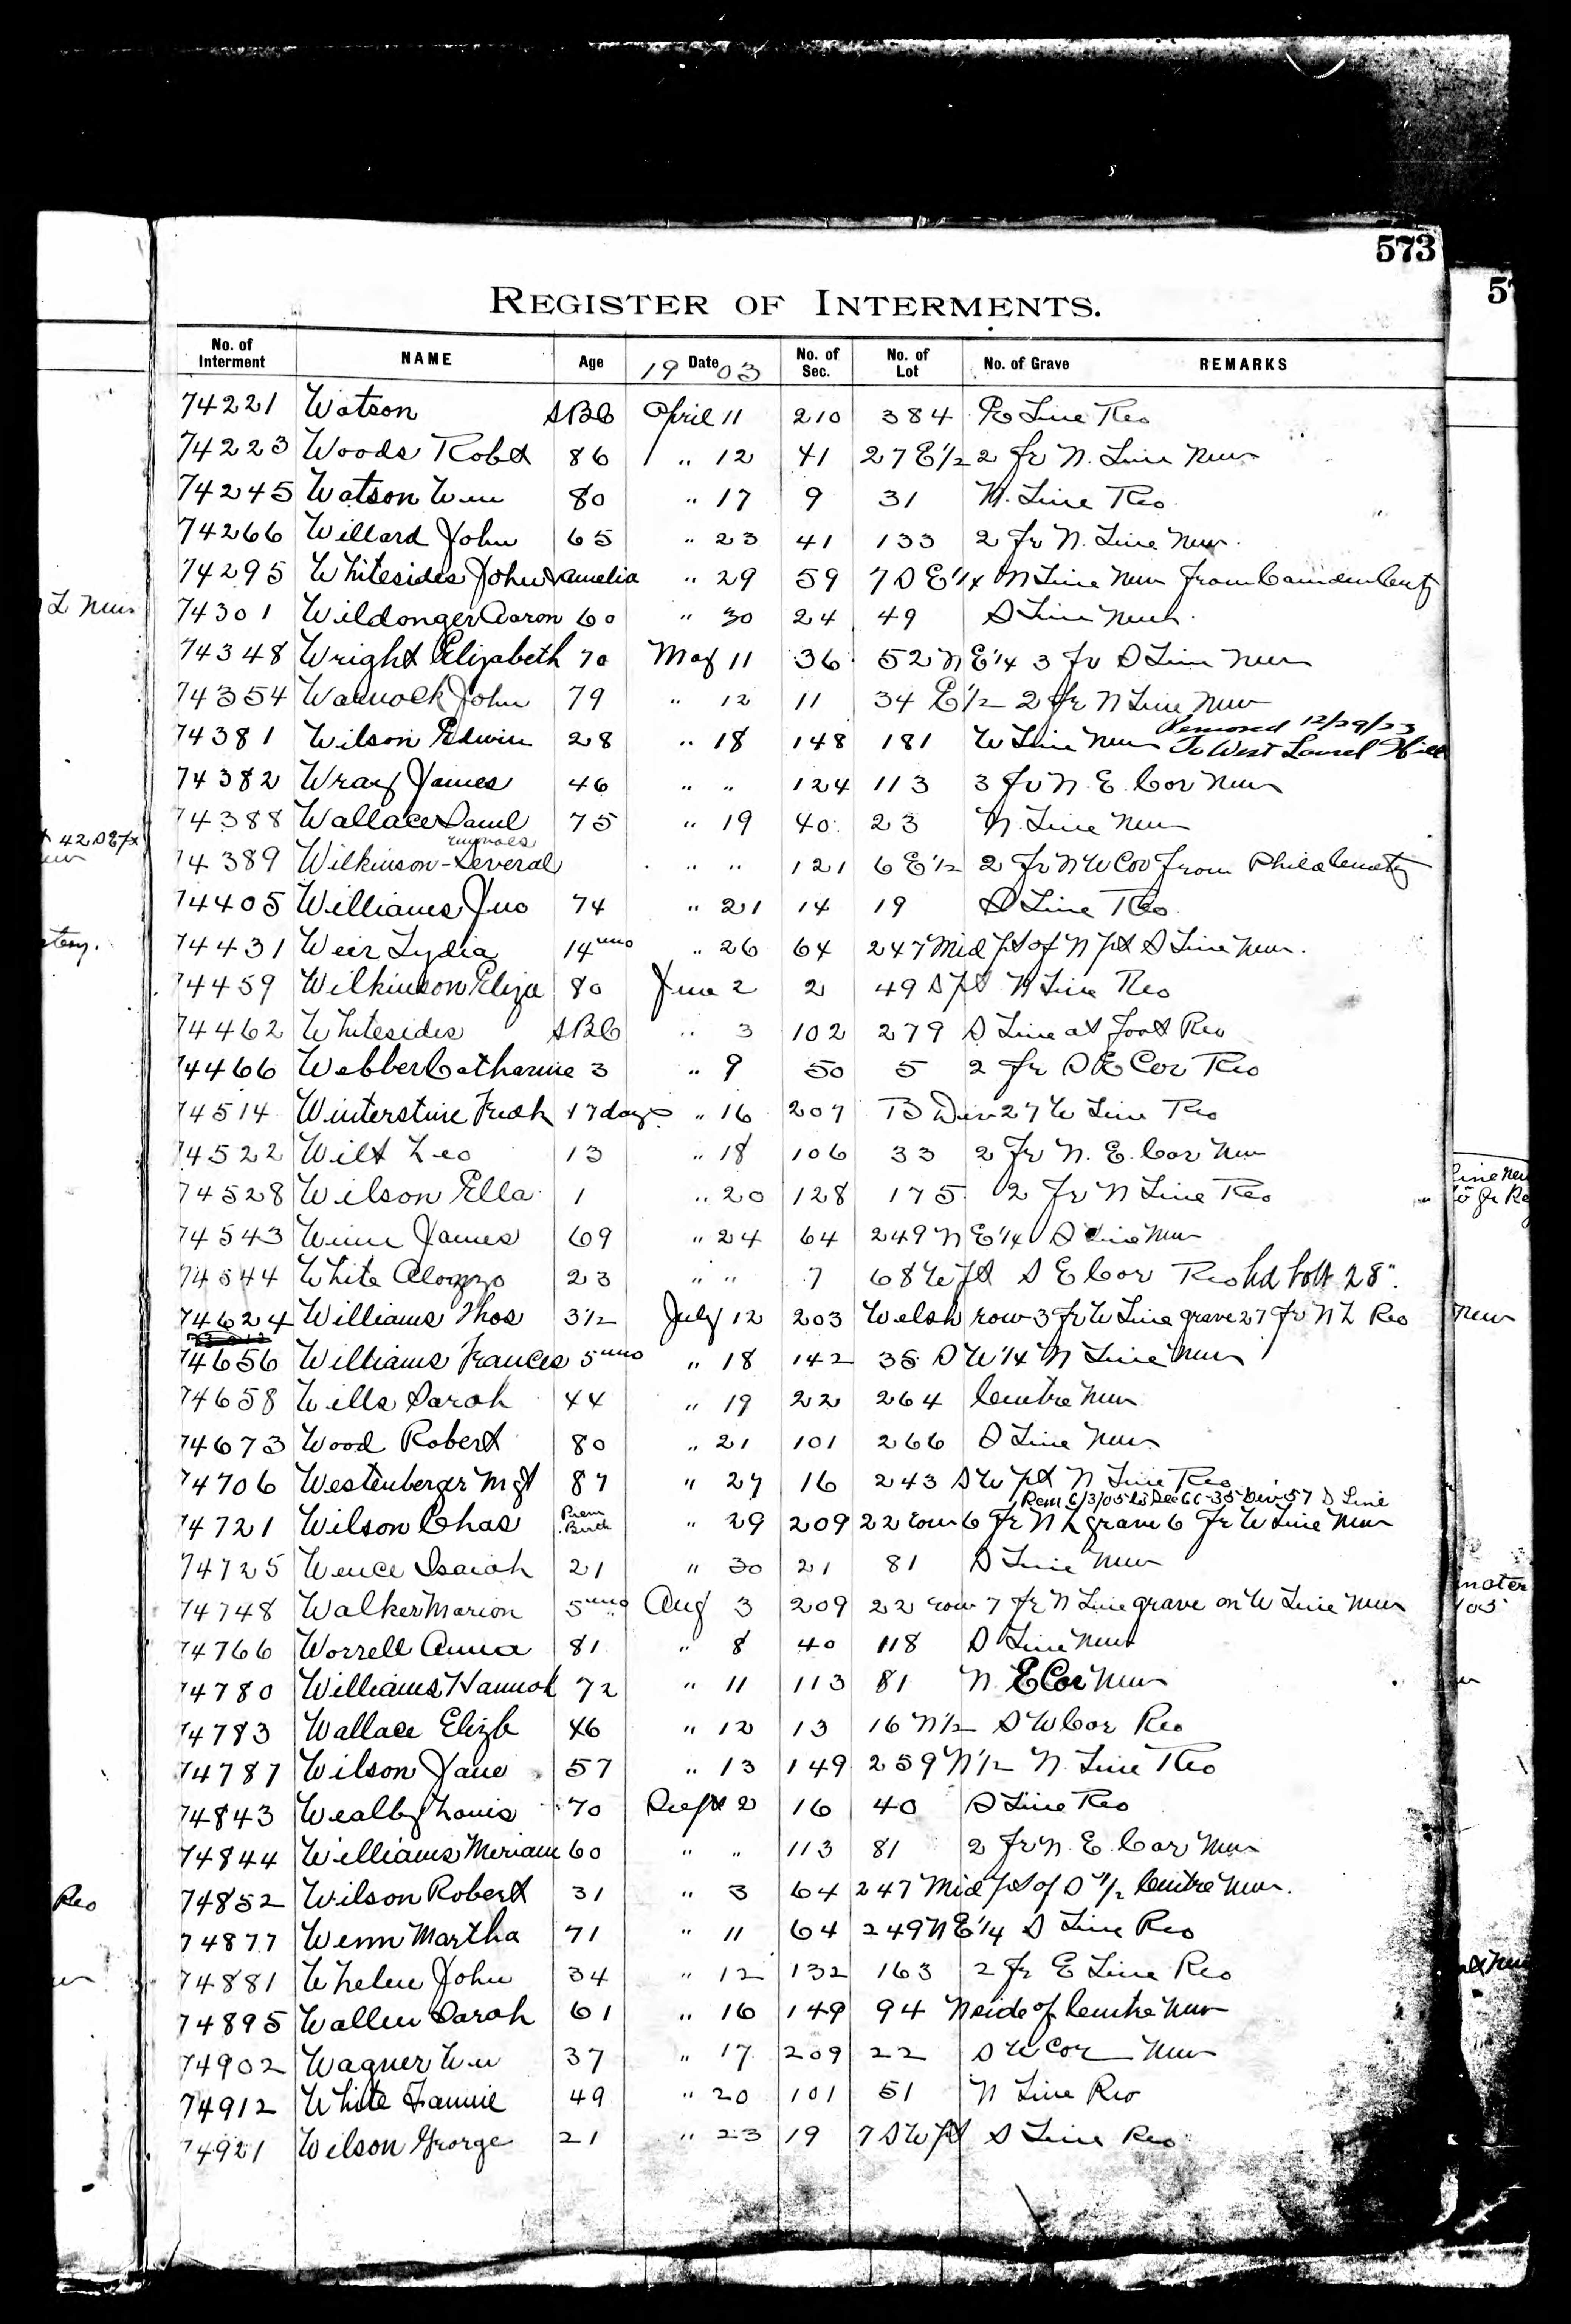 573
REGISTER OF INTERMENTS.
No. of Interment NAME Age 19 Date 03 No. of Sec. No. of Lot No. of Grave REMARKS
74221 Watson SBC April 11 210 384 E Line Reo
74223 Woods Robt 86 " 12 41 27 E 1/2 2 fr N. Line New
74245 Watson Wm 80 " 17 9 31 N. Line Reo
74266 Willard John 65 " 23 41 133 2 fr N. Line New.
74295 Whitesides John & Amelia " 29 59 7 S E 1/4 N Line New from Camden Cemty
74301 Wildonger Aaron 60 " 30 24 49 S Line New.
74348 Wright Elizabeth 70 May 11 36 52 N E 1/4 3 fr S Line New
74354 Warnock John 79 " 12 11 34 E 1/2 2 fr N Line New
74381 Wilson Edwin 28 " 18 148 181 W Line New Removed 12/29/23 To West Laurel Hill
74382 Wray James 46 " " 124 113 3 fr N. E. Cor New
74388 Wallace Saml 75 " 19 40 23 N. Line New
74389 Wilkinson - Several removals " " 121 6 E 1/2 2 fr N W Cor from Phila Cemty
74405 Williams Jno 74 " 21 14 19 S Line Reo
74431 Weir Lydia 14 mo " 26 64 247 Mid pt of N pt S Line New.
74459 Wilkinson Eliza 80 June 2 2 49 S pt N Line Reo
74462 Whitesides SBC " 3 102 279 S Line at foot Reo
74466 Webber Catharine 3 " 9 50 5 2 fr S E Cor Reo
74514 Winterstine Fredk 17 days " 16 207 B Div 27 W Line Reo
74522 Wilt Leo 13 " 18 106 33 2 fr N. E. Cor New
74528 Wilson Ella 1 " 20 128 175 2 fr N Line Reo
74543 Winn James 69 " 24 64 249 N E 1/4 S Line New
74544 White Alonzo 23 " " 7 68 W pt S E Cor Reo
74624 Williams Thos 3 1/2 July 12 203 Welsh row 3 fr W Line grave 27 fr N L Reo
74656 Williams Frances 5 mo " 18 142 35 S W 1/4 N Line New
74658 Wills Sarah 44 " 19 22 264 Centre New
74673 Wood Robert 80 " 21 101 266 S Line New
74706 Westenberger Mgt 87 " 27 16 243 S W pt N Line Reo
Rem 6/3/05 to Sec 66-35 Div 57 S Line
74721 Wilson Chas Prem Birth " 29 209 22 row 6 fr N L grave 6 fr W Line New
74725 Wence Isaiah 21 " 30 21 81 S Line New
74748 Walker Marion 5 mo Aug 3 209 22 row 7 fr N Line grave on W Line New
74766 Worrell Anna 81 " 8 40 118 S Line New
74780 Williams Hannah 72 " 11 113 81 N. E Cor New
74783 Wallace Elizb 46 " 12 13 16 N 1/2 S W Cor Reo
74787 Wilson Jane 57 " 13 149 259 N 1/2 N. Line Reo
74843 Wealby Louis 70 Sept 2 16 40 S Line Reo
74844 Williams Meriam 60 " " 113 81 2 fr N. E. Cor New
74852 Wilson Robert 31 " 3 64 247 Mid pt of S 1/2 Centre New.
74877 Wenn Martha 71 " 11 64 249 N E 1/4 S Line Reo
74881 Whelen John 34 " 12 132 163 2 fr E Line Reo
74895 Wallen Sarah 61 " 16 149 94 N side of Centre New
74902 Wagner Wm 37 " 17 209 22 S W Cor New
74912 White Fannie 49 " 20 101 51 N Line Reo
74921 Wilson George 21 " 23 19 7 S W pt S Line Reo